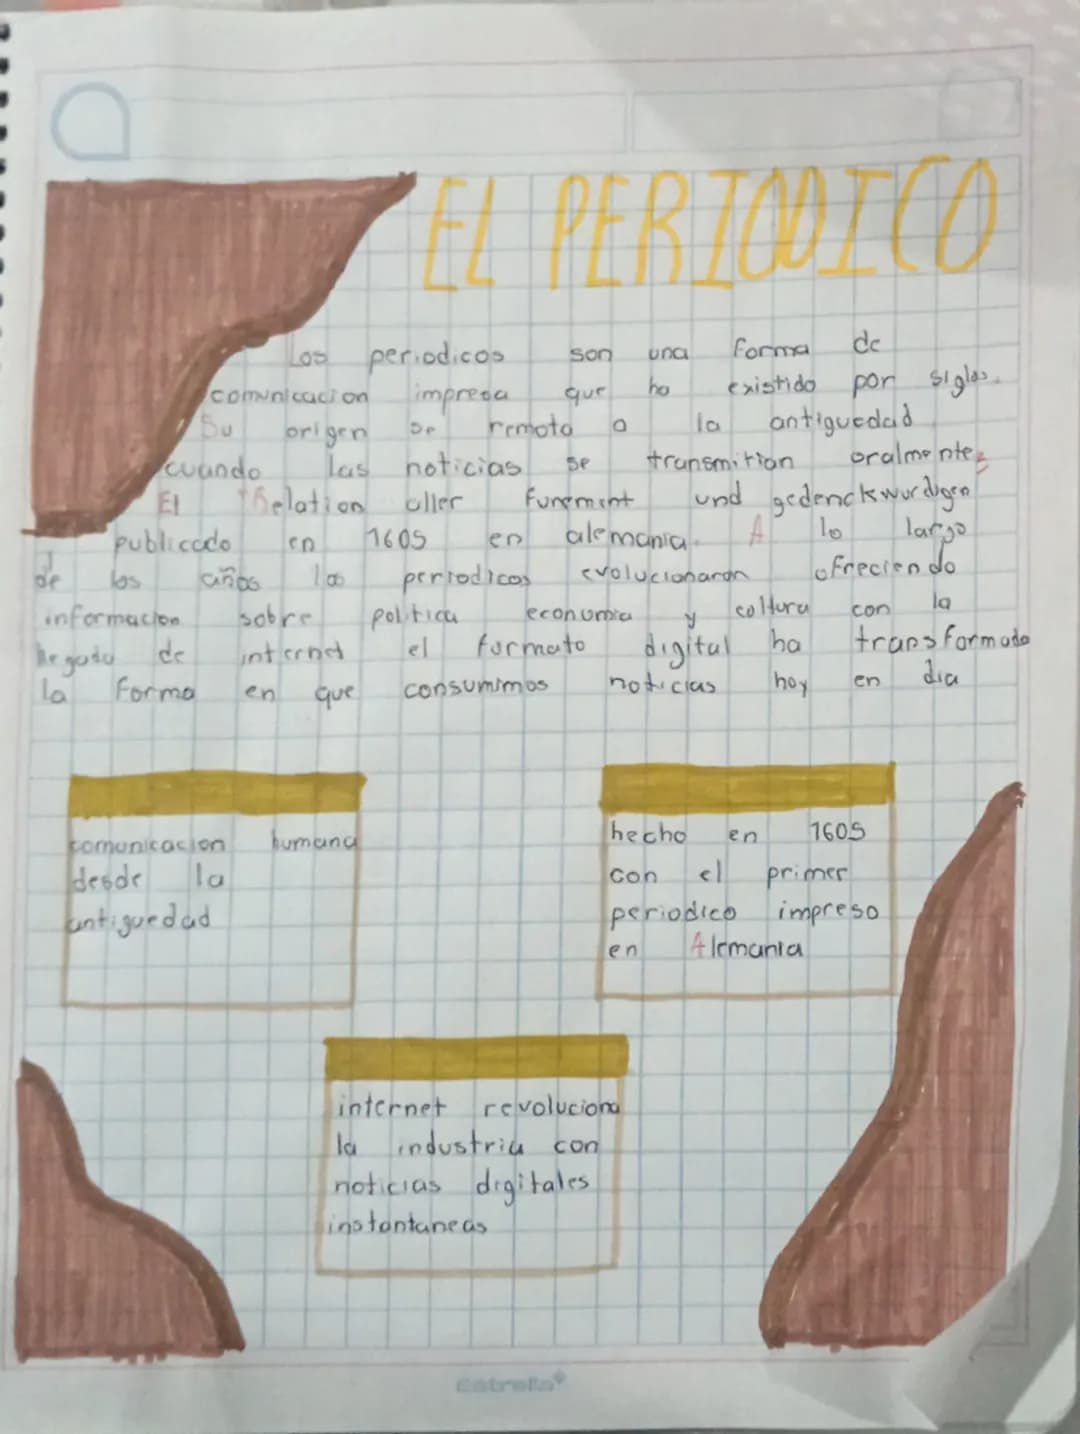 EL PERIODICO
Los periodicos son una forma de
comunicacion impresa que ha existido por siglos.
Su origen se remota a la antiguedad
cuando las noticias se transmitian oralmente
El Relation aller Furemint und gedenckswurdigen
publicado en 1605 en alemania. A lo largo
de los años los periodicos evolucionaron ofreciendo
informacion sobre politica economia y coltura con la
llegada de internet el formato digital ha transformado
la forma en que consumimos noticias hoy en dia
comunicacion humana
desde la
antiguedad
hecho en 1605
con el primer
periodico impreso
en Alemania
internet revoluciona
la industria con
noticias digitales
instantaneas
Estrella